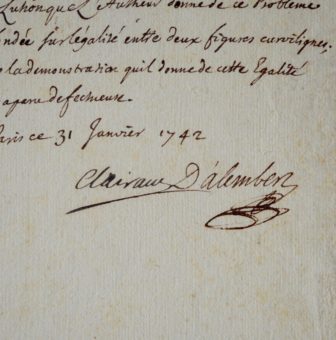 Luhonque L'Autheur donne de ce Probleme
ndée sur l'egalité entre deux figures curvilignes,
la demonstration qu'il donne de cette Egalité
aparu defectueuse.
Paris ce 31 Janvier 1742
Clairaut D'alembert